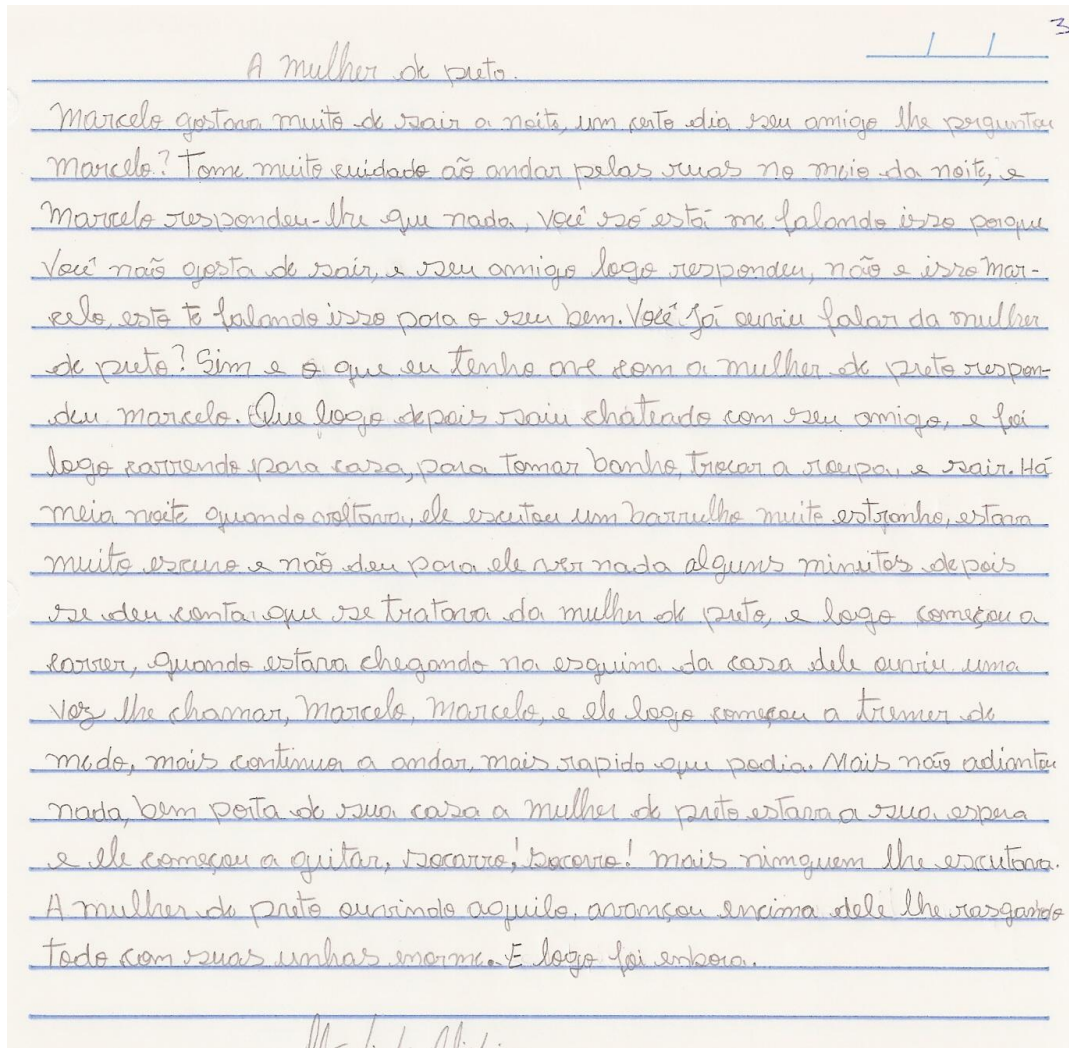 3
A mulher de preto.
Marcelo gostava muito de sair a noite, um certo dia seu amigo lhe perguntou
Marcelo? Tome muito cuidado aõ andar pelas ruas no meio da noite, e
Marcelo respondeu-lhe que nada, você só está me falando isso porque
Você não gosta de sair, e seu amigo logo respondeu, não e isso Mar-
celo, esto te falando isso para o seu bem. Você já ouviu falar da mulher
de preto? Sim e o que eu tenho ave com a mulher de preto respon-
deu marcelo. Que logo depois saiu chateado com seu amigo, e foi
logo correndo para casa, para tomar banho, trocar a roupa, e sair. Há
meia noite quando voltava, ele escutou um barrulho muito estranho, estava
muito escuro e não deu para ele ver nada alguns minutos depois
se deu conta que se tratava da mulher de preto, e logo começou a
correr, quando estava chegando na esquina da casa dele ouviu uma
voz lhe chamar, Marcelo, Marcelo, e ele logo começou a tremer de
medo, mais continuor a andar, mais rapido que podia. Mais não adiantou
nada, bem porta de sua casa a mulher de preto estava a sua espera
e ele começou a guitar, socorro,! socorro! mais nimguem lhe escutava.
A mulher de preto ouvindo aquilo, avançou encima dele lhe rasgando
todo com suas unhas enorme. E logo foi enbora.